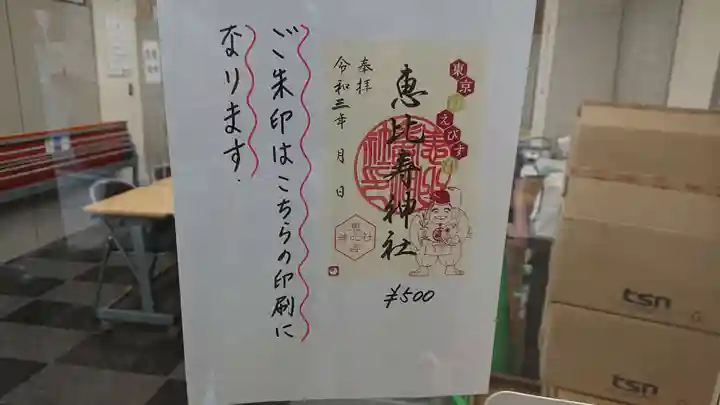 ご朱印はこちらの印刷に
なります.
東京
えびす
恵比寿神社
奉拝
令和三年 月 日
恵比寿
神社
¥500
tsn
tsn